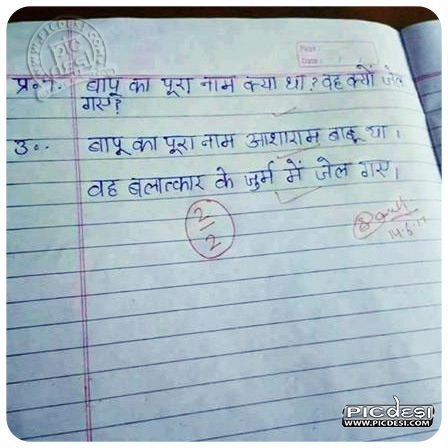 Page :
Date :
प्र॰1. बापू का पूरा नाम क्या था? वह क्यों जेल
गए?
उ॰. बापू का पूरा नाम आशाराम बाबू था।
वह बलात्कार के जुर्म में जेल गए।
2/2
PICDESI
WWW.PICDESI.COM